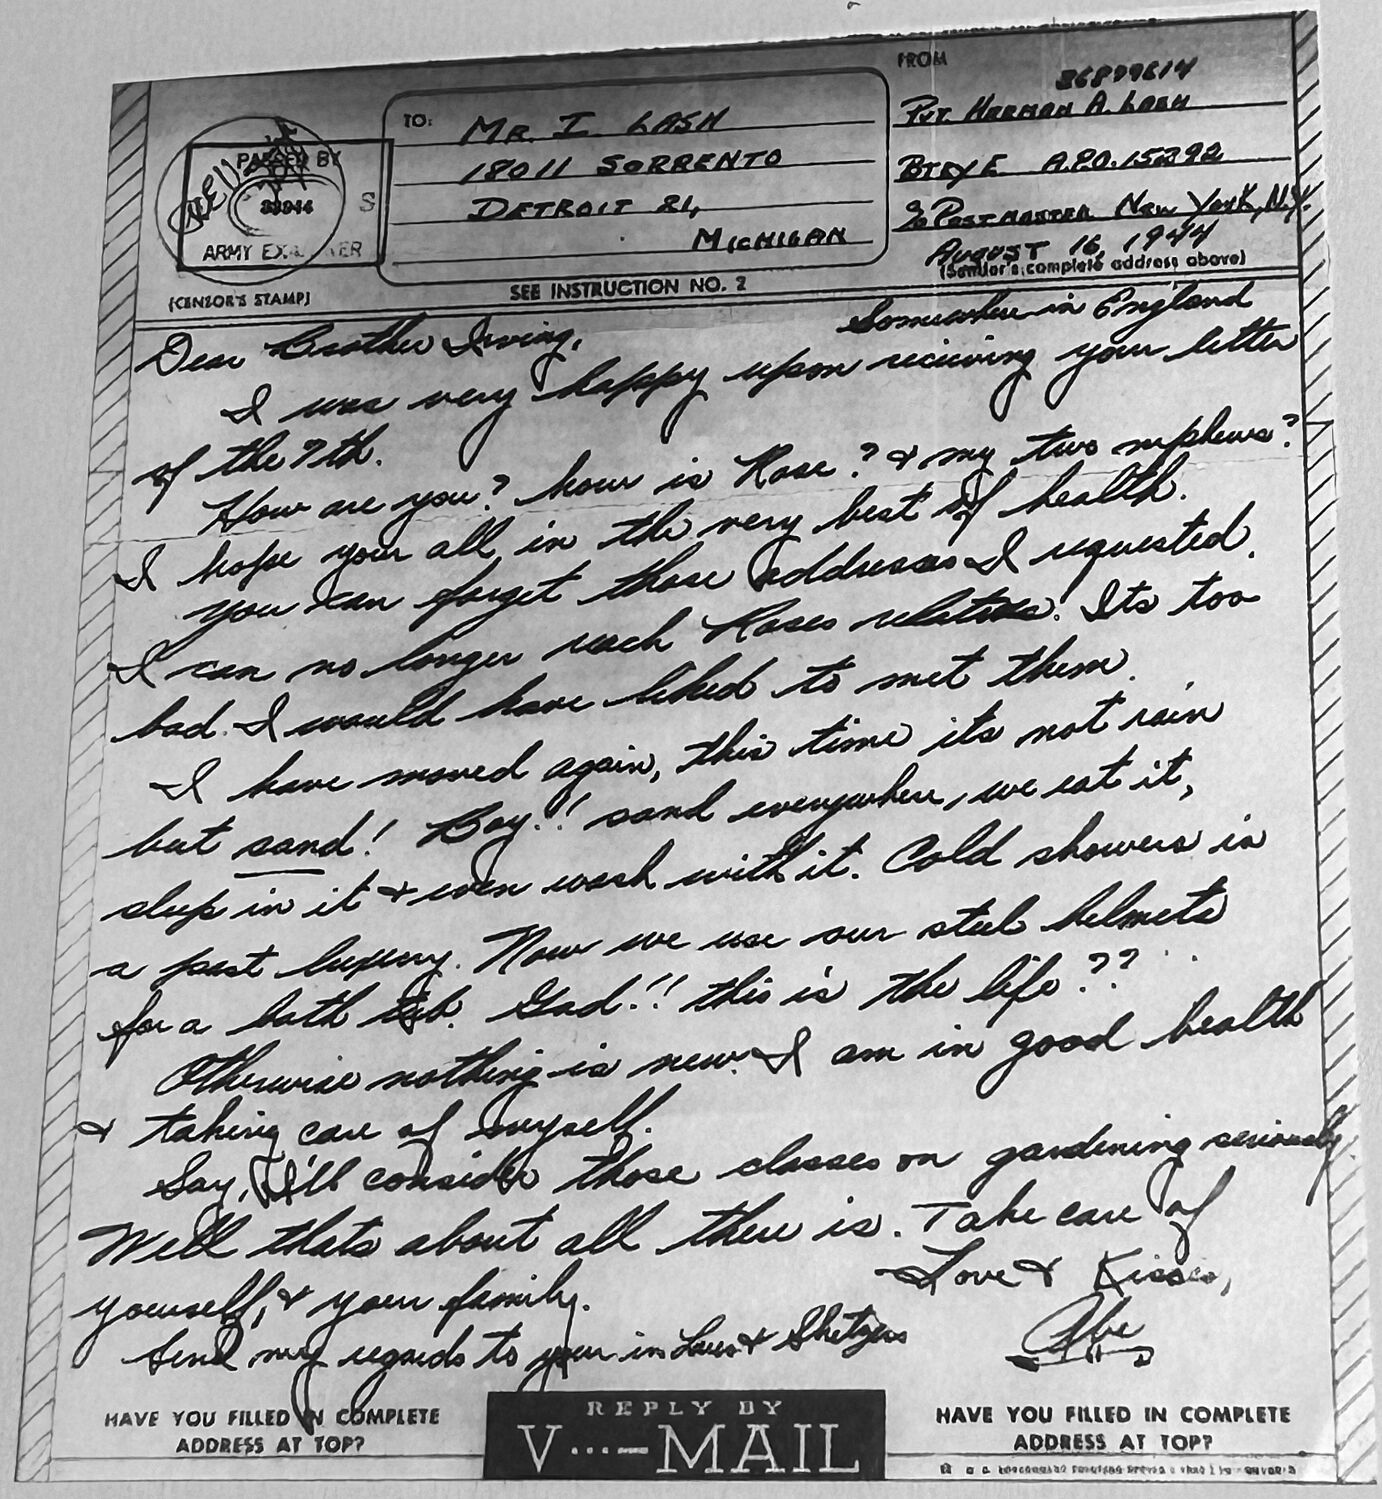 FROM
36899614
TO: MR. I. LASH
PVT. HERMAN A. LASH
18011 SORRENTO
BTRY E A.P.O. 15292
DETROIT 21,
C/O POSTMASTER NEW YORK, N.Y.
MICHIGAN
AUGUST 16, 1944
(Sender's complete address above)
PASSED BY
S
ARMY EXAMINER
(CENSOR'S STAMP)
SEE INSTRUCTION NO. 2
Somewhere in England
Dear Brother Irving,
I was very happy upon recieving your letter
of the 7th.
How are you? how is Rose? & my two nephews?
I hope your all in the very best of health.
You can forget those addresses I requested.
I can no longer reach Roses relatives. Its too
bad. I would have liked to met them.
I have moved again, this time its not rain
but sand! Boy!! sand everywhere, we eat it,
sleep in it & even wash with it. Cold showers is
a past luxury. Now we use our steel helmets
for a bath tub. Gad!! this is the life??
Otherwise nothing is new. I am in good health
& taking care of myself.
Say, I'll consider those classes on gardening seriously
Well thats about all there is. Take care of
yourself, & your family.
Love & Kisses,
Send my regards to your in Laws & Shetzers
Abe
HAVE YOU FILLED IN COMPLETE
ADDRESS AT TOP?
REPLY BY
V···—MAIL
HAVE YOU FILLED IN COMPLETE
ADDRESS AT TOP?